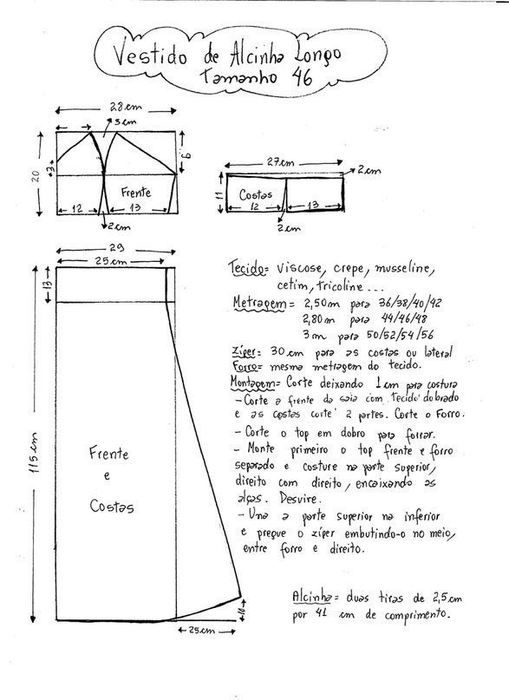 Vestido de Alcinha Longo
Tamanho 46
28 cm
3 cm
3
20
9
Frente
12
13
2 cm
27 cm
2 cm
11
Costas
12
13
2 cm
29
25 cm
13
115 cm
Frente
e
Costas
25 cm
Tecido= viscose, crepe, musseline,
cetim, tricoline...
Metragem= 2,50 m para 36/38/40/42
2,80 m para 44/46/48
3 m para 50/52/54/56
Zíper= 30 cm para as costas ou lateral
Forro= mesma metragem do tecido.
Montagem= Corte deixando 1 cm para costura
- Corte a frente da saia com tecido dobrado
e as costas corte 2 partes. Corte o Forro.
- Corte o top em dobro para forrar.
- Monte primeiro o top frente e forro
separado e costure na parte superior,
direito com direito, encaixando as
alças. Desvire.
- Una a parte superior na inferior
e pregue o zíper embutindo-o no meio,
entre forro e direito.
Alcinha= duas tiras de 2,5 cm
por 41 cm de comprimento.